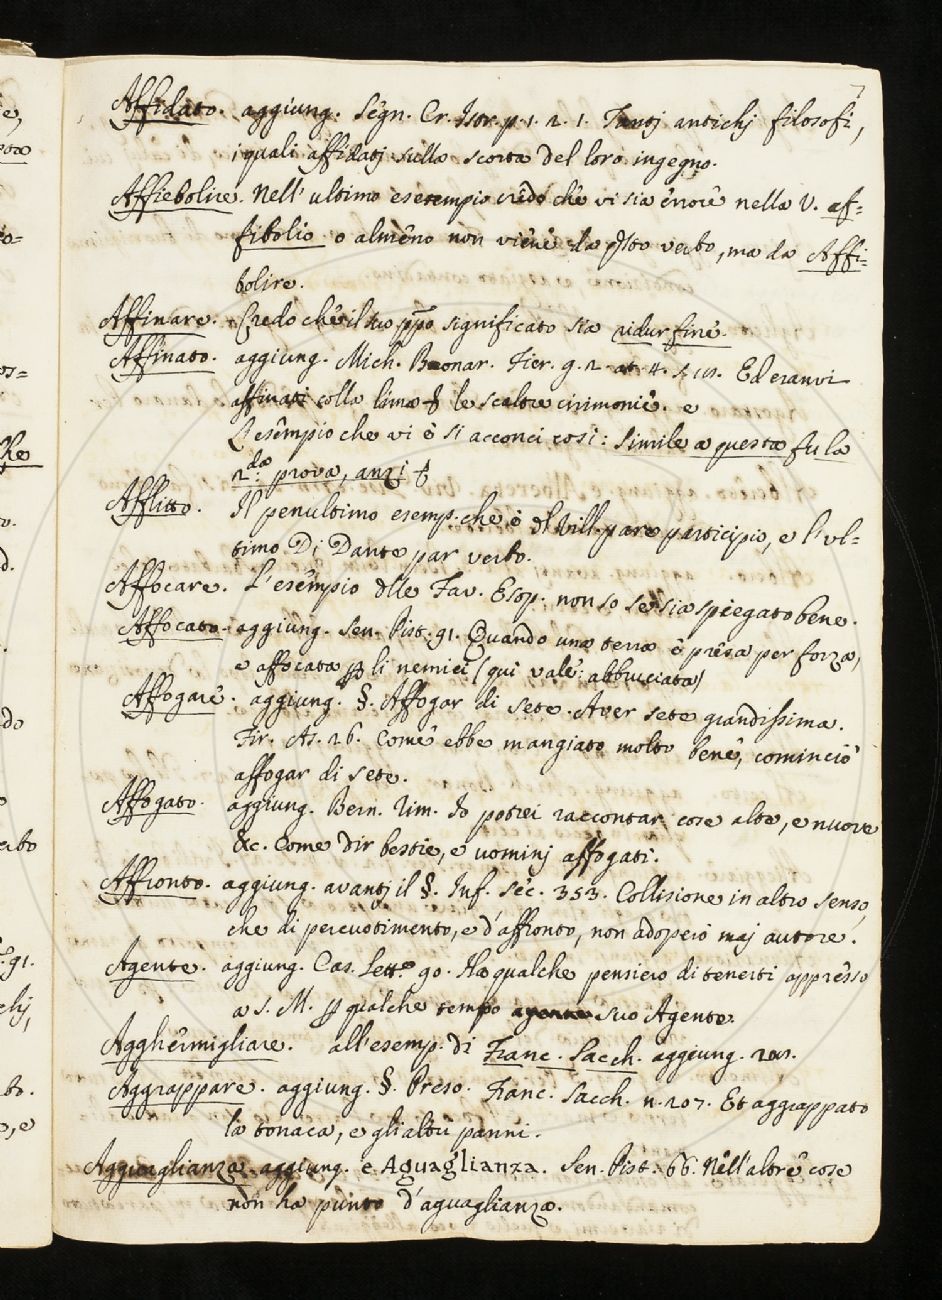 7
Affidato. aggiung. Segn. Cr. Istr. p. 1. 2. 1. Tantj antichj filosofi,
i quali affidatj sulla scorta del loro ingegno.
Affiebolire. Nell' ultimo esempio credo che vi sia errore nella V. af=
fibolio o almeno non viene da qsto verbo, ma da Affi=
bolire.
Affinare. Credo che il suo ppo significato sia ridur fine.
Affinato. aggiung. Mich. Buonar. Fier. g. 2. at. 4. s. Ed eranvi
affinati colla lima le scaltre cirimonie. e
L'esempio che vi è si acconci così: simile a questa fu la
2da prova, anzi
Afflitto. Il penultimo esemp. che è dl Vill. pare participio, e l'ul=
timo Di Dante par verbo.
Affocare. L'esempio dlle Fav. Esop. non so se sia spiegato bene.
Affocato. aggiung. Sen. Pist. 91. Quando una terra è presa per forza,
e affocata p li nemici (qui vale: abbruciata)
Affogare. aggiung. §. Affogar di sete. Aver sete grandissima.
Fir. As. 26. Come ebbe mangiato molto bene, cominciò
affogar di sete.
Affogato. aggiung. Bern. rim. Io potrei raccontar cose alte, e nuove
&c. Come dir bestie, e uominj affogati.
Affronto. aggiung. avantj il §. Inf. Sec. 353. Collisione in altro senso,
che di percuotimento, e d'affronto, non adoperò maj autore.
Agente. aggiung. Cas. Lett. 90. Ha qualche pensiero di tenerti appresso
a S. M. p qualche tempo suo Agente.
Agghermigliare. all'esemp. di Franc. Sacch. aggiung.
Aggrappare. aggiung. §. Preso. Franc. Sacch. n. 207. Et aggrappato
la tonaca, e gli altri panni.
Agguaglianza. aggiung. e Aguaglianza. Sen. Pist. 66. Nell'altre cose
non ha punto d'aguaglianza.